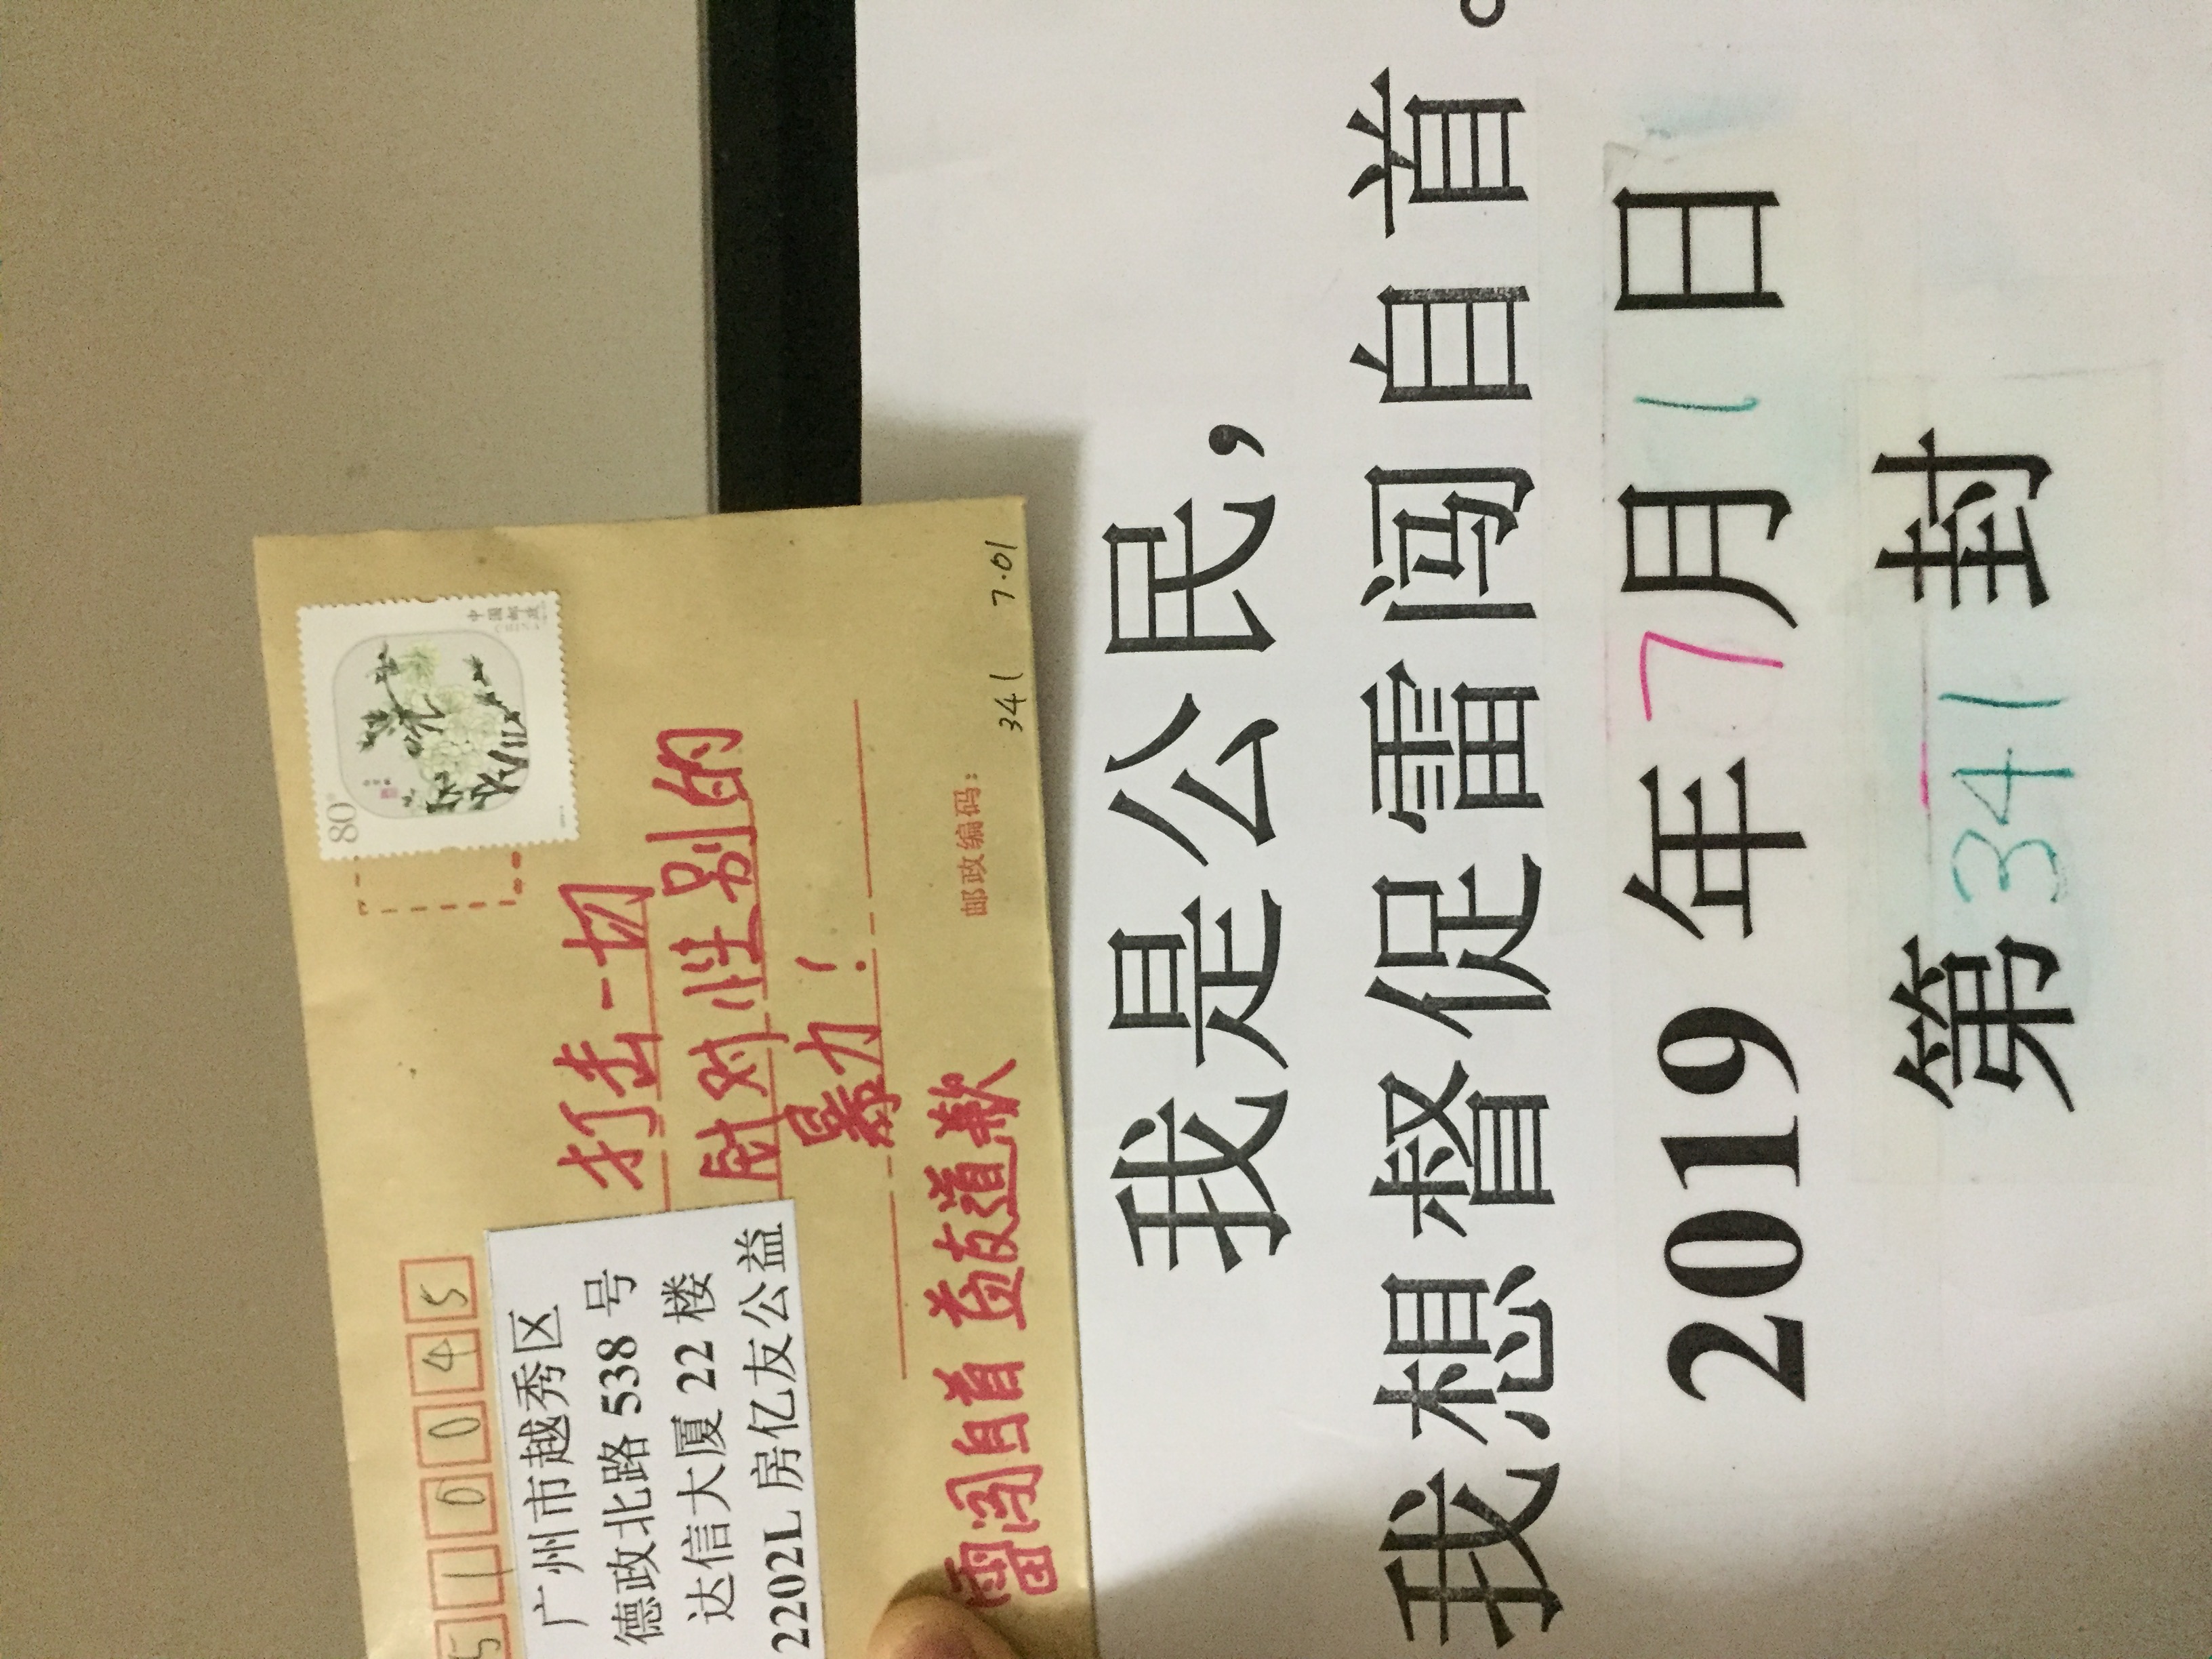 80
中国邮政
510045
广州市越秀区
德政北路 538 号
达信大厦 22 楼
2202L 房亿友公益
打击一切
针对性别的
暴力！
雷闯自首 益友道歉
邮政编码：
341 7.01
我是公民，
我想督促雷闯自首。
2019 年 7 月 1 日
第 341 封